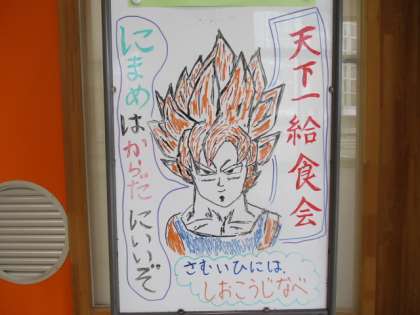 天下一給食会
にまめはからだにいいぞ
さむいひには、
しおこうじなべ